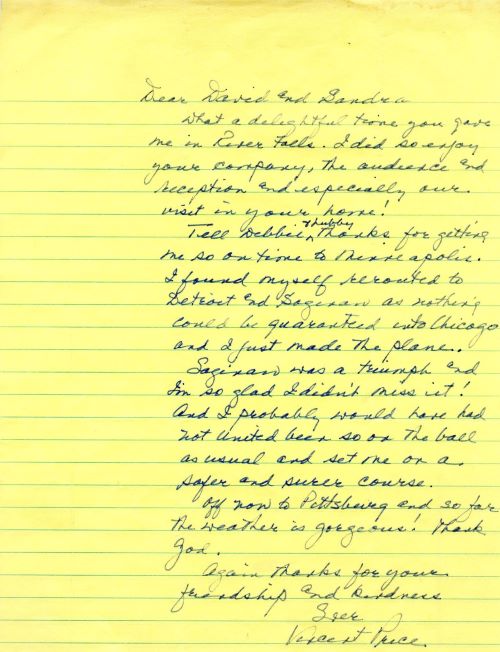 Dear David and Sandra
What a delightful time you gave
me in River Falls. I did so enjoy
your company, the audience and
reception and especially our
visit in your home!
Tell Debbie & hubby thanks for getting
me so on time to Minneapolis.
I found myself rerouted to
Detroit and Saginaw as nothing
could be guaranteed into Chicago
and I just made the plane.
Saginaw was a triumph and
I'm so glad I didn't miss it!
And I probably would have had
not United been so on the ball
as usual and set me on a
safer and surer course.
Off now to Pittsburg and so far
the weather is gorgeous! Thank
God.
Again thanks for your
friendship and kindness
Vincent Price